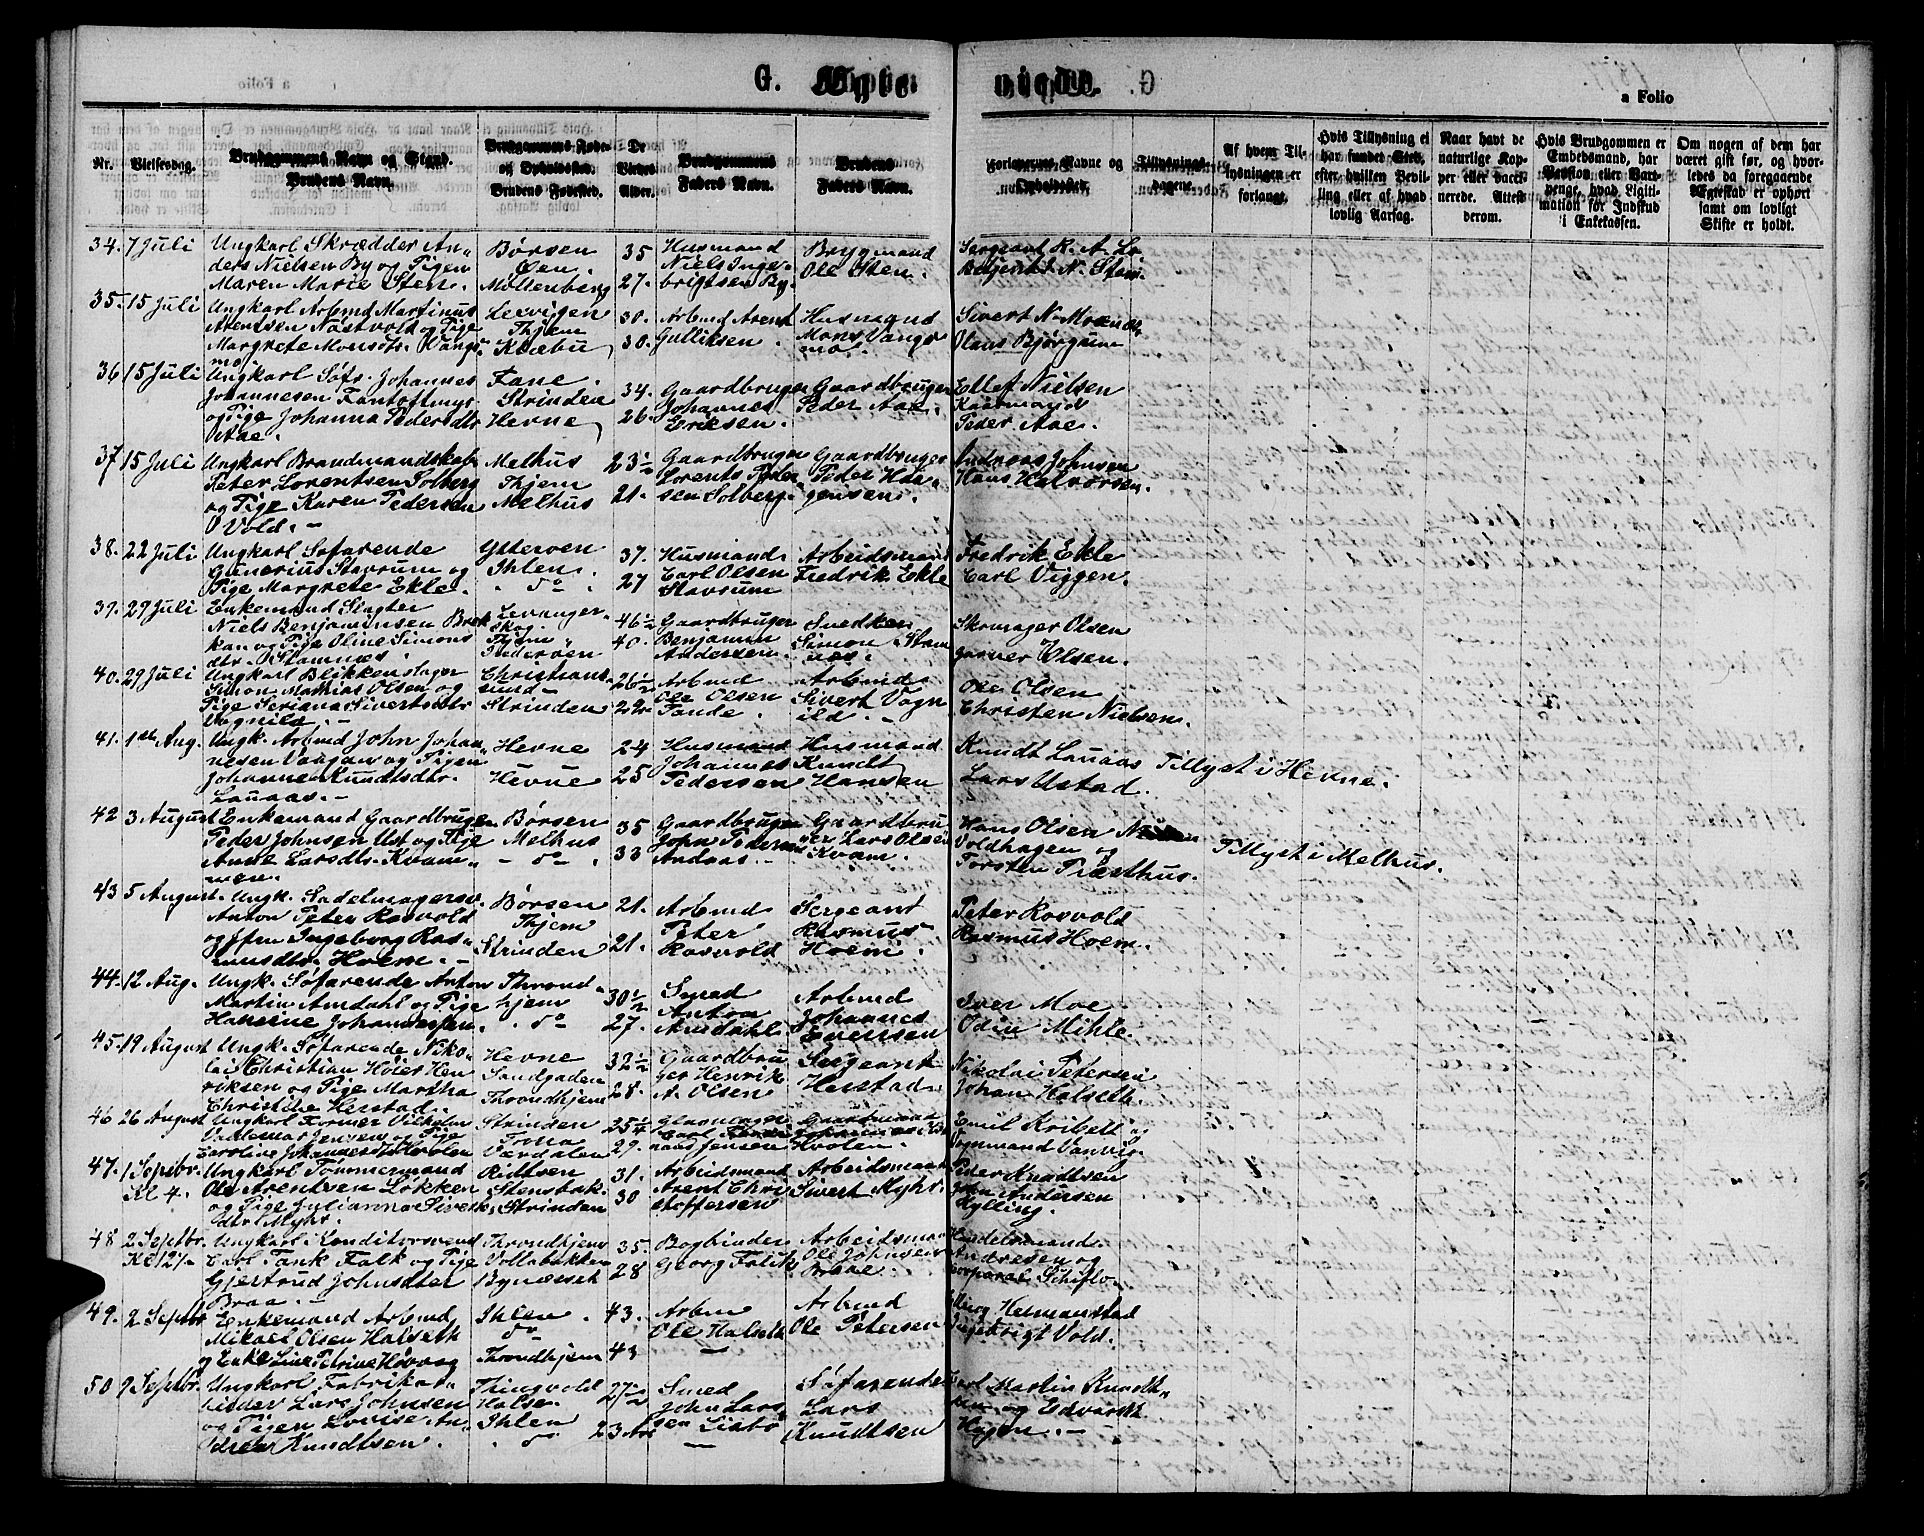 G. Ægte-
viede.
a Folio
Nr.
Vielsesdag.
Brudgommens Navn og Stand.
Brudens Navn.
Brudgommens Føde-
og Opholdssted.
Brudens Fødested.
De
Viedes
Alder.
Brudgommens
Faders Navn.
Brudens
Faders Navn.
Forlovernes Navne og
Opholdssted.
Tillysnings-
dagene.
Af hvem Til-
lysningen er
forlangt.
Hvis Tillysning ei
har fundet Sted,
efter hvilken Bevil-
ling eller af hvad
lovlig Aarsag.
Naar havt de
naturlige Kop-
per eller vacci-
nerede. Attest
derom.
Hvis Brudgommen er
Embedsmand, har
Pension eller Vart-
penge, hvad Ligiti-
mation for Indskud
i Enkekassen.
Om nogen af dem har
været gift før, og hvor-
ledes da foregaaende
Ægteskab er ophørt
samt om lovligt
Skifte er holdt.
34. 7 Juli
Ungkarl Skrædder An-
ders Nielsen By og Pigen
Maren Marie Sten.
Børsen
Øen.
Møllenberg
35
27.
Husmand
Niels Inge-
brigtsen By.
Brygmand
Ole Sten.
Sergeant K. A.
N. Sten.
35. 15 Juli
Ungkarl Arbmd Martinus
Arentsen Nøstvold og Pige
Margrete Monsdtr. Vangs-
mo
Leevigen
Thjem
Klæbu
30.
30.
Arbmd Arent
Gulliksen.
Husmand
Mons Vangs-
mo.
Sivert N. Moen og
Olaus Bjørgum
36 15 Juli
Ungkarl Søfr. Johannes
Johannesen Fantoftmyr
og Pige Johanna Pedersdtr
Aae.
Fane.
Strinden
Hevne
34.
26.
Gaardbruger
Johannes
Eriksen.
Gaardbruger
Peder Aae.
Ellef Nielsen
Peder Aae.
37 15 Juli
Ungkarl Brandmandskab
Peter Lorentsen Solberg
og Pige Karen Pedersen
Vold. -
Melhus
Thjem
Melhus
23½
21.
Gaardbruger
Lorents Peder-
sen Solberg.
Gaardbruger
Peder Haa-
gensen.
Andreas Johnsen
Hans Halvorsen.
38. 22 Juli
Ungkarl Søfarende
Gunerius Stavrum og
Pige Margrete Ekle.
Ytterøen
Ihlen.
do
37.
27
Husmand
Carl Olsen
Stavrum
Arbeidsmand
Fredrik Ekle
Fredrik Ekle
Carl Viggen.
39. 29 Juli
Enkemand Slagter
Niels Benjaminsen Brek-
kan og Pige Oline Simons
dtr. Stamnes.
Levanger-
skog.
Thjem
Inderøen
46½
40.
Gaardbruger
Benjamin
Andersen.
Snedker
Simon Stam
nes.
Skomager Olsen
garver Olsen.
40. 29 Juli
Ungkarl Blikkenslager
Simon Mathias Olsen og
Pige Seriana Sivertsdtr
Vognild. -
Christians-
sund -
Strinden
26½
22
Arbmd
Ole Olsen
Tande.
Arbmd
Sivert Vogn
ild. -
Ole Olsen
Christen Nielsen.
41. 1ste Aug.
Ungk. Arbmd John Johan-
nesen Vaagan og Pigen
Johanne Knudtsdtr.
Lauaas. -
Hevne
Hevne
24
25
Husmand
Johannes
Pedersen
Husmand
Knudt
Hansen
Knudt Lauaas
Lars Ustad.
Tillyst i Hevne.
42 3 August
Enkemand Gaardbruger
Peder Johnsen Ust og Pige
Anne Larsdtr. Kvam-
men.
Børsen
Melhus
- do -
35
33
Gaardbruger
John Pedersen
Andaas. -
Gaardbru
ger Lars Olsen
Kvam.
Hans Olsen
Voldhagen og
Torsten Træsthus.
Tillyst i Melhus.
43 5 August.
Ungk. Sadelmagersv.
Anton Peter Rosvold
og Jfru Ingeborg Ras-
musdtr. Hoem. -
Børsen
Thjem
Strinden
21.
21.
Arbmd
Peter
Rosvold
Sergeant
Rasmus
Hoem.
Peter Rosvold
Rasmus Hoem.
44. 12 Aug.
Ungk. Søfarende Anton
Martin Amdahl og Pige
Hansine Johannessen.
Thrond-
hjem
do
30½
27.
Smed
Anton
Amdahl
Arbmd
Johannes
Evensen
Iver Moe
Odin Mihle.
45. 19 August
Ungk. Søfarende Niko-
lai Christian Høier Hen-
riksen og Pige Martha
Christine Herstad.
Hevne
Sandgaden
Throndhjem
32½
28.
Gaardbru
ger Henrik
A. Olsen
Sergeant
Herstad.
Nikolai Petersen
Johan Halseth.
46 26 August
Ungkarl Former Vilhelm
Valdemar Jensen og Pige
Caroline Johannesdtr Hvolen
Strinden
Trolla
Værdalen
25¼
29.
Glasmager
Carl
Jensen
Hvolen.
Emil Kribell og
Vognmand Vanvig.
47. 1 Septbr.
Kl 4.
Ungkarl Tømmermand
Ole Arentsen Løkken
og Pige Julianna Siverts
dtr. Myhr.
Rissen
Stensbak.
Strinden
31.
30
Arbeidsmand
Arent Chri
stoffersen
Arbeidsmand
Sivert Myhr.
Peder Knudtsen
John Andersen
Kylling.
48 2 Septbr.
Kl 12½
Ungkarl Konditorsvend
Carl Tank Falk og Pige
Gjertrud Johnsdtr
Braa. -
Throndhjem
Vollabakken
Bynæsset
35.
28
Bogbinder
Georg Falk
Arbeidsman
Ole Johnsen
Braae.
Handelsmand
Andresen og
Corporal Schiflo.
49. 2 Septbr
Enkemand Arbmd
Mikael Olsen Halseth
og Enke Line Petrine Høvaag
Ihlen.
do
Throndhjem
43.
43
Arbm
Ole Halseth
-
Arbmd
Ole Petersen
Helmanstad
Vold.
50 9 Septbr.
Ungkarl Fabrikar-
beider Lars Johnsen
og Pigen Lovise An-
drea Knudtsen.
Thingvold
Halse.
Ihlen
do
27½
23 Aar
Smed
John Lars
sen Lisbø
-
Søfarende
Lars
Knudtsen
Martin Knudt-
sen og Edvard
Hagen. -